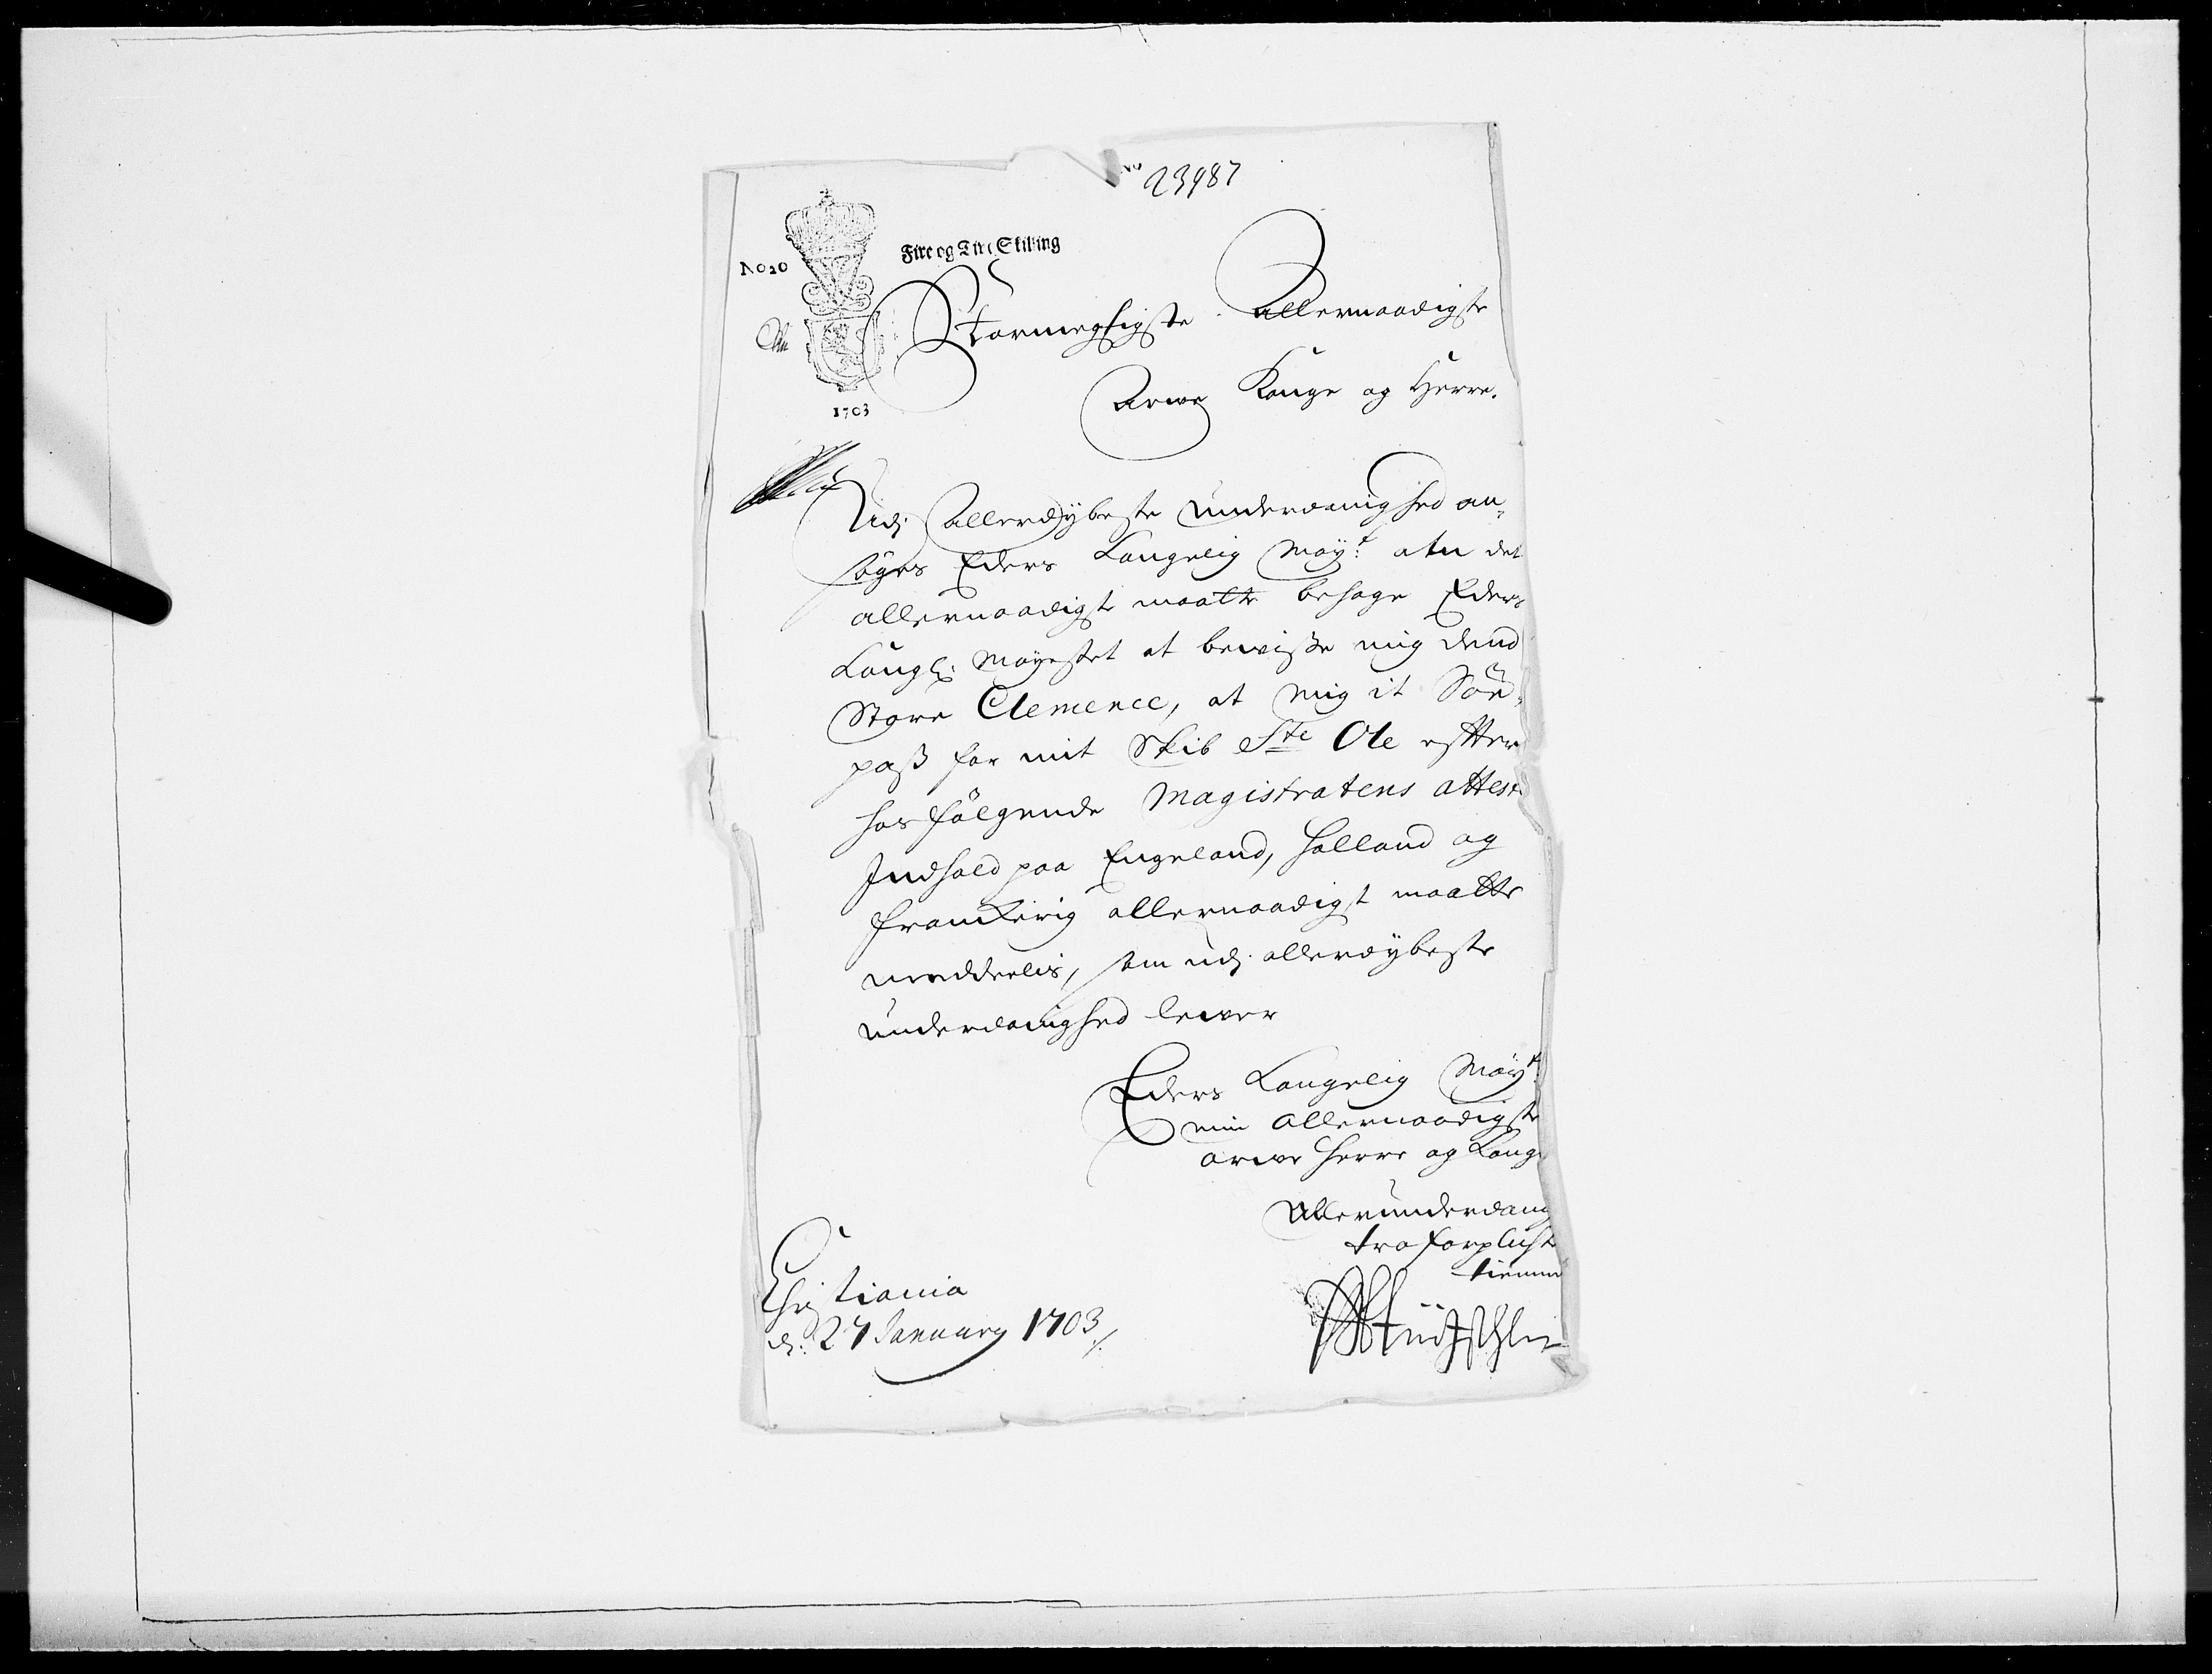 No 23987
No 20
Fire og Tive Skilling
Stormegtigste Allernaadigste
Arwe Konge og Herre.
1703
Udj Allerdybeste underdanighed an,
søges Eders Kongelig Mayt. atn det
allernaadigst maatte behage Eders
Kongl: Mayestet at bewisse mig dend
Store Clemence, at mig it Söe,
pass for mit Skib Ste Ole effter
hosfölgende Magistratens attest
Indhold paa Engeland, Holland og
Franckrig allernaadigst maatte
meddeelis, som udj allerdybeste
underdanighed lewer
Eders Kongelig Mayt.
min Allernaadigste
arwe Herre og Konge
Allerunderdanig
tro forplicht
tienner
Christiania
d: 27 January 1703